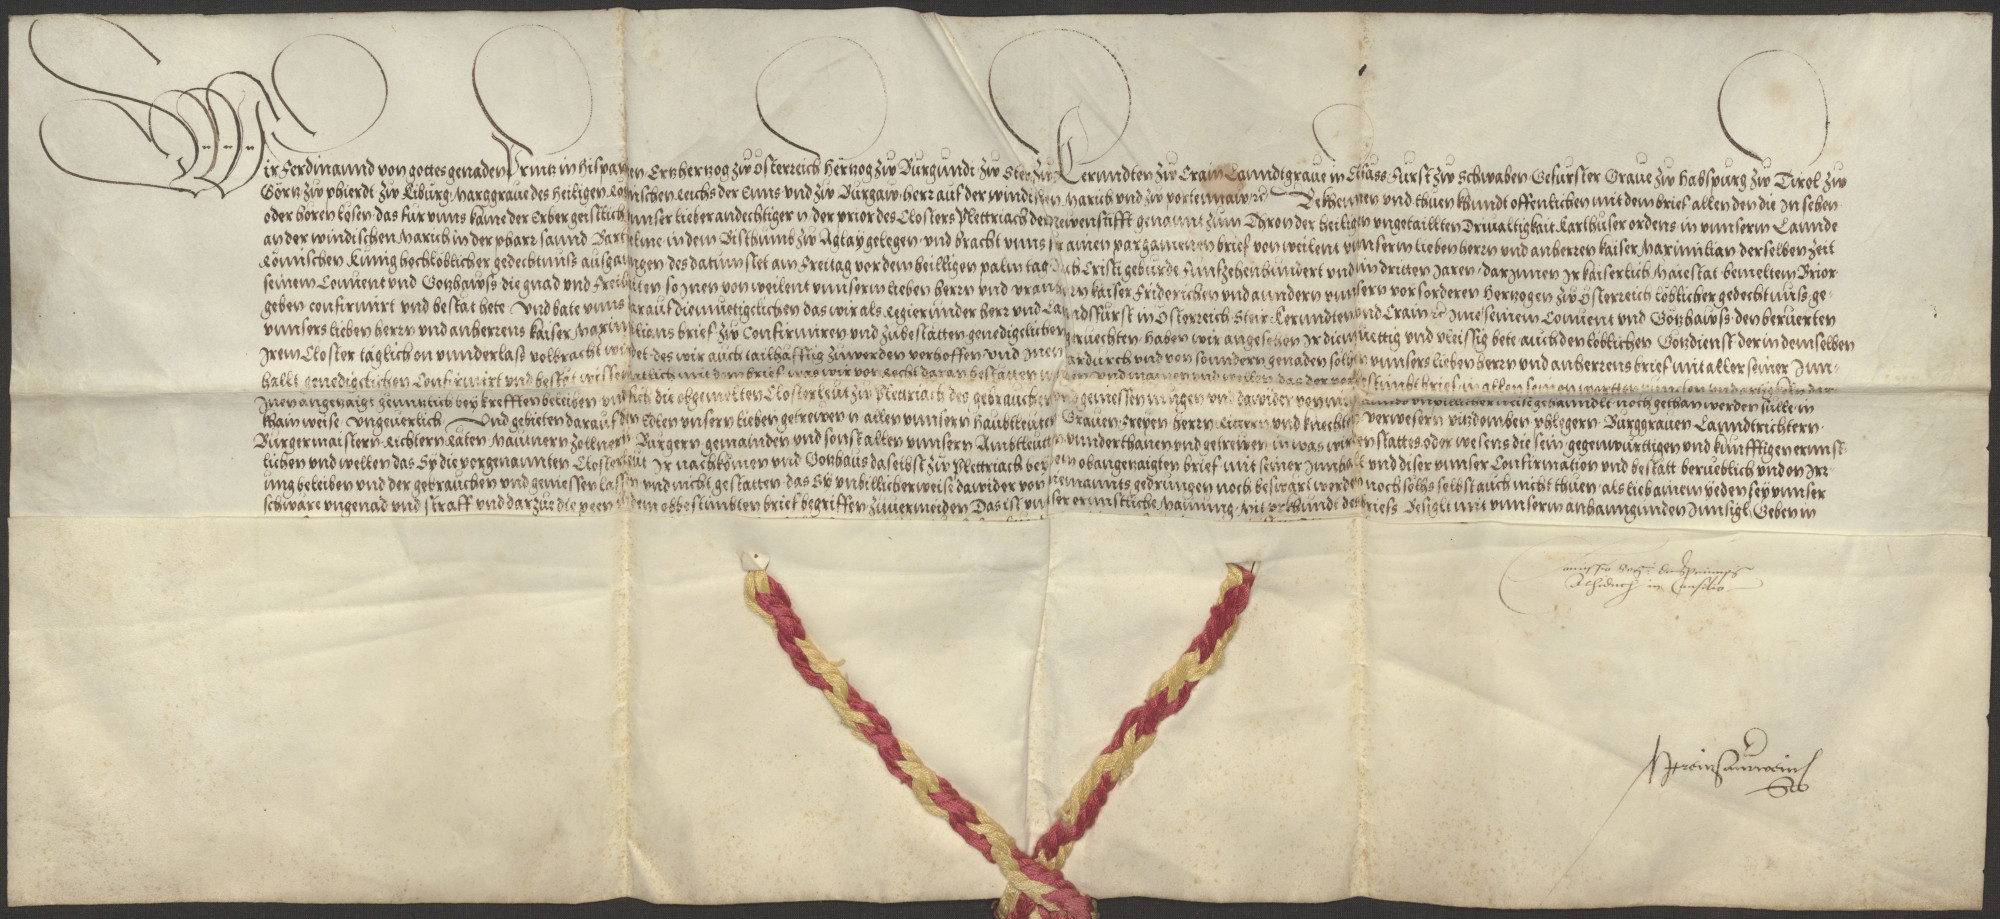 Wir Ferdinannd von gottes genaden Printz in Hispanien Ertzhertzog zw Osterreich Hertzog zw Burgundi zw Steir zw Kernndten zw Crain Lanndtgraue in Elsass Furst zw Schwaben Gefurster Graue zw Habspurg zw Tirol zw
Görtz zw phierdt zw Kiburg Marggraue des Heiligen Römischen Reichs der Enns vnd zw Burgaw herr auf der windischen March vnd zw portenaw rc Bekhennen vnd thuen khundt offenlichen mit dem brief allen den die In sehen
oder hören lesen das fur vnns kame der Erber geistlich vnnser lieber andechtiger n der prior des Closters Plettriach der Newenstifft genannt zum Thron der heiligen vngetaillten Driualtigkait Karthuser ordens in vnnserm Lannde
an der windischen March in der pharr sannd Bartelme in dem Bisthumb zw Aglay gelegen vnd bracht vnns fur ainen pargamenen brief von weilent vnnserm lieben herrn vnd anherren kaiser Maximilian derselben zeit
Römischen Kunig hochlöblicher gedechtnuss ausgangen des datum stet am Freitag vor dem heilligen palm tag nach Cristi geburde Funfzehenhundert vnd im dritten Jaren darInnen Ir kaiserlich Maiestat bemeltem Prior
seinem Conuent vnd Gotzhawss die gnad vnd Freihaiten so Inen von weilent vnnserm lieben herrn vnd vranherrn kaiser Friderichen vnd anndern vnnsern vorforderen Hertzogen zw Osterreich löblicher gedechtnuss ge-
geben confirmirt vnd bestat hete Vnd bate vnns darauf diemuetigclichen das wir als Regierunder herr vnd Landsfurst in Osterreich Steir Kernndten vnd Crain rc Ime seinem Conuent vnd Gotzhawss den beruerten
vnnsers lieben herrn vnd anherrens kaiser Maximilians brief zw Confirmiren vnd zubestatten genedigclichen gruechten Haben wir angesehen Ir diemuettig vnd vleissig bete auch den löblichen Gotzdienst der in demselben
Irem Closter täglich on vnnderlass volbracht wirdet des wir auch tailhafftig zuwerden verhoffen vnd Inen dardurch vnd von sonndern genaden solhen vnnsers lieben herrn vnd anherrens brief mit aller seiner Inn-
hallt genedigclichen Confirmirt vnd bestat wissentlich mit dem brief was wir von Recht daran bestatten
Inen angenzaigt genntzlich bey krefften beleiben vnd sich die obgemelten Closterleut zw Plettriach des gebrauchen vnd geniessen mugen vnd dawider von gehanndlt noch gethan werden sulle in
khain weise vngeuerlich Vnd gebieten darauf den Edlen vnnsern lieben getrewen n allen vnnsern Haubtleuten Grauen Freyen herrn Rittern vnd knechten Verwesern vitzdomben phlegern Burggrauen Lanndtrichtern
Burgermaistern Richtern Räten Mauttnern Zollnern Burgern gemainden vnd sonst allen vnnsern Ambtleuten vnnderthanen vnd getrewen in was wirden stattes oder wesens die sein gegenwurttigen vnd kunfftigen ernnst-
lichen vnd wellen das Sy die vorgenannten Closterleut Ir nachkomen vnd Gotzhaus daselbst zw Plettriach bey dem obangenzaigten brief mit seiner Innhalt vnd diser vnnser Confirmation vnd bestatt beruebich vnd on Irr-
ung beleiben vnd der gebrauchen vnd geniessen lassen vnd nicht gestatten das Sy vnbillicherweise dawider von yemannts gedrungen noch beswart werden noch solhs selbst auch nicht thuen als lieb ainem yeden sey vnnser
schware vngenad vnd straff vnd darzue die peen in dem obbestimbten brief begriffen zuuermeiden Das ist vnnser ernnstliche Maynung Mit vrkhundt des briefs Besiglt mit vnnserm anhanngunden Innsigl Geben in
Comissio domini principis
Archiducis in Consilio
Treitzsaurwein